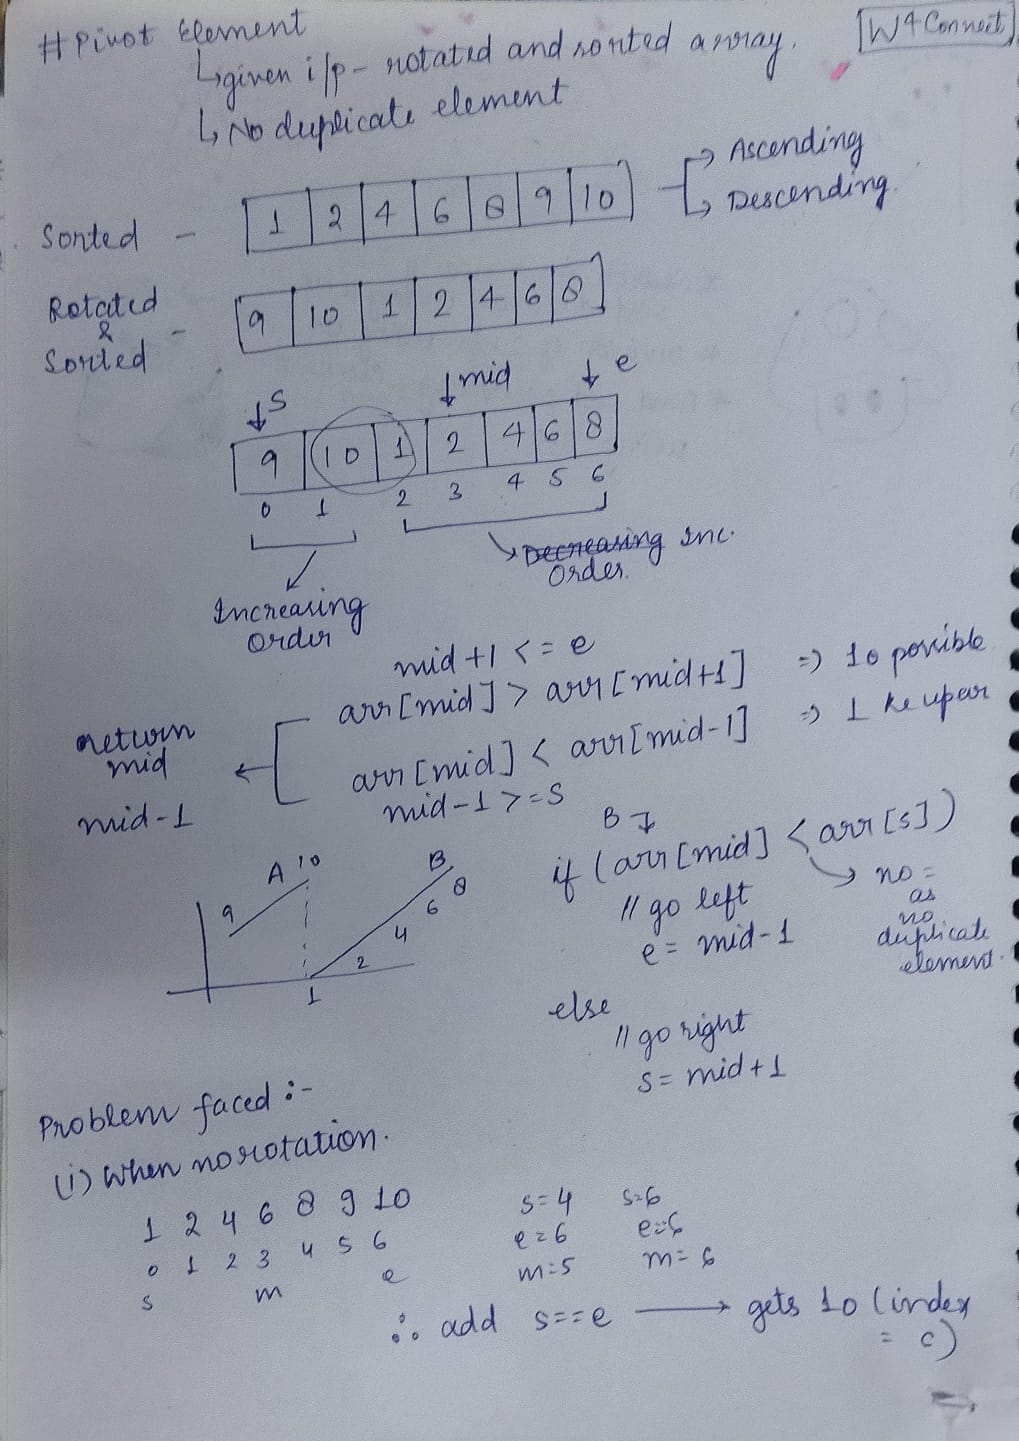 # Pivot Element
[W4 Connect]
↳ given i/p - rotated and sorted array.
↳ No duplicate element
Sorted - 1 2 4 6 8 9 10
→ Ascending
→ Descending.
Rotated & Sorted - 9 10 1 2 4 6 8
↓s ↓mid ↓e
9 10 1 2 4 6 8
0 1 2 3 4 5 6
Increasing order
Decreasing Inc. Order.
mid+1 <= e
arr[mid] > arr[mid+1] => 10 possible
arr[mid] < arr[mid-1] => 1 ke upar
mid-1 >= s
return
mid
mid-1
A 9 10
B 1 2 4 6 8
B
if (arr[mid] < arr[s])
→ no = as no duplicate element.
// go left
e = mid-1
else
// go right
s = mid+1
Problem faced :-
(i) When no rotation.
1 2 4 6 8 9 10
0 1 2 3 4 5 6
s m e
s=4 s=6
e=6 e=6
m=5 m=6
∴ add s==e → gets 10 (index =